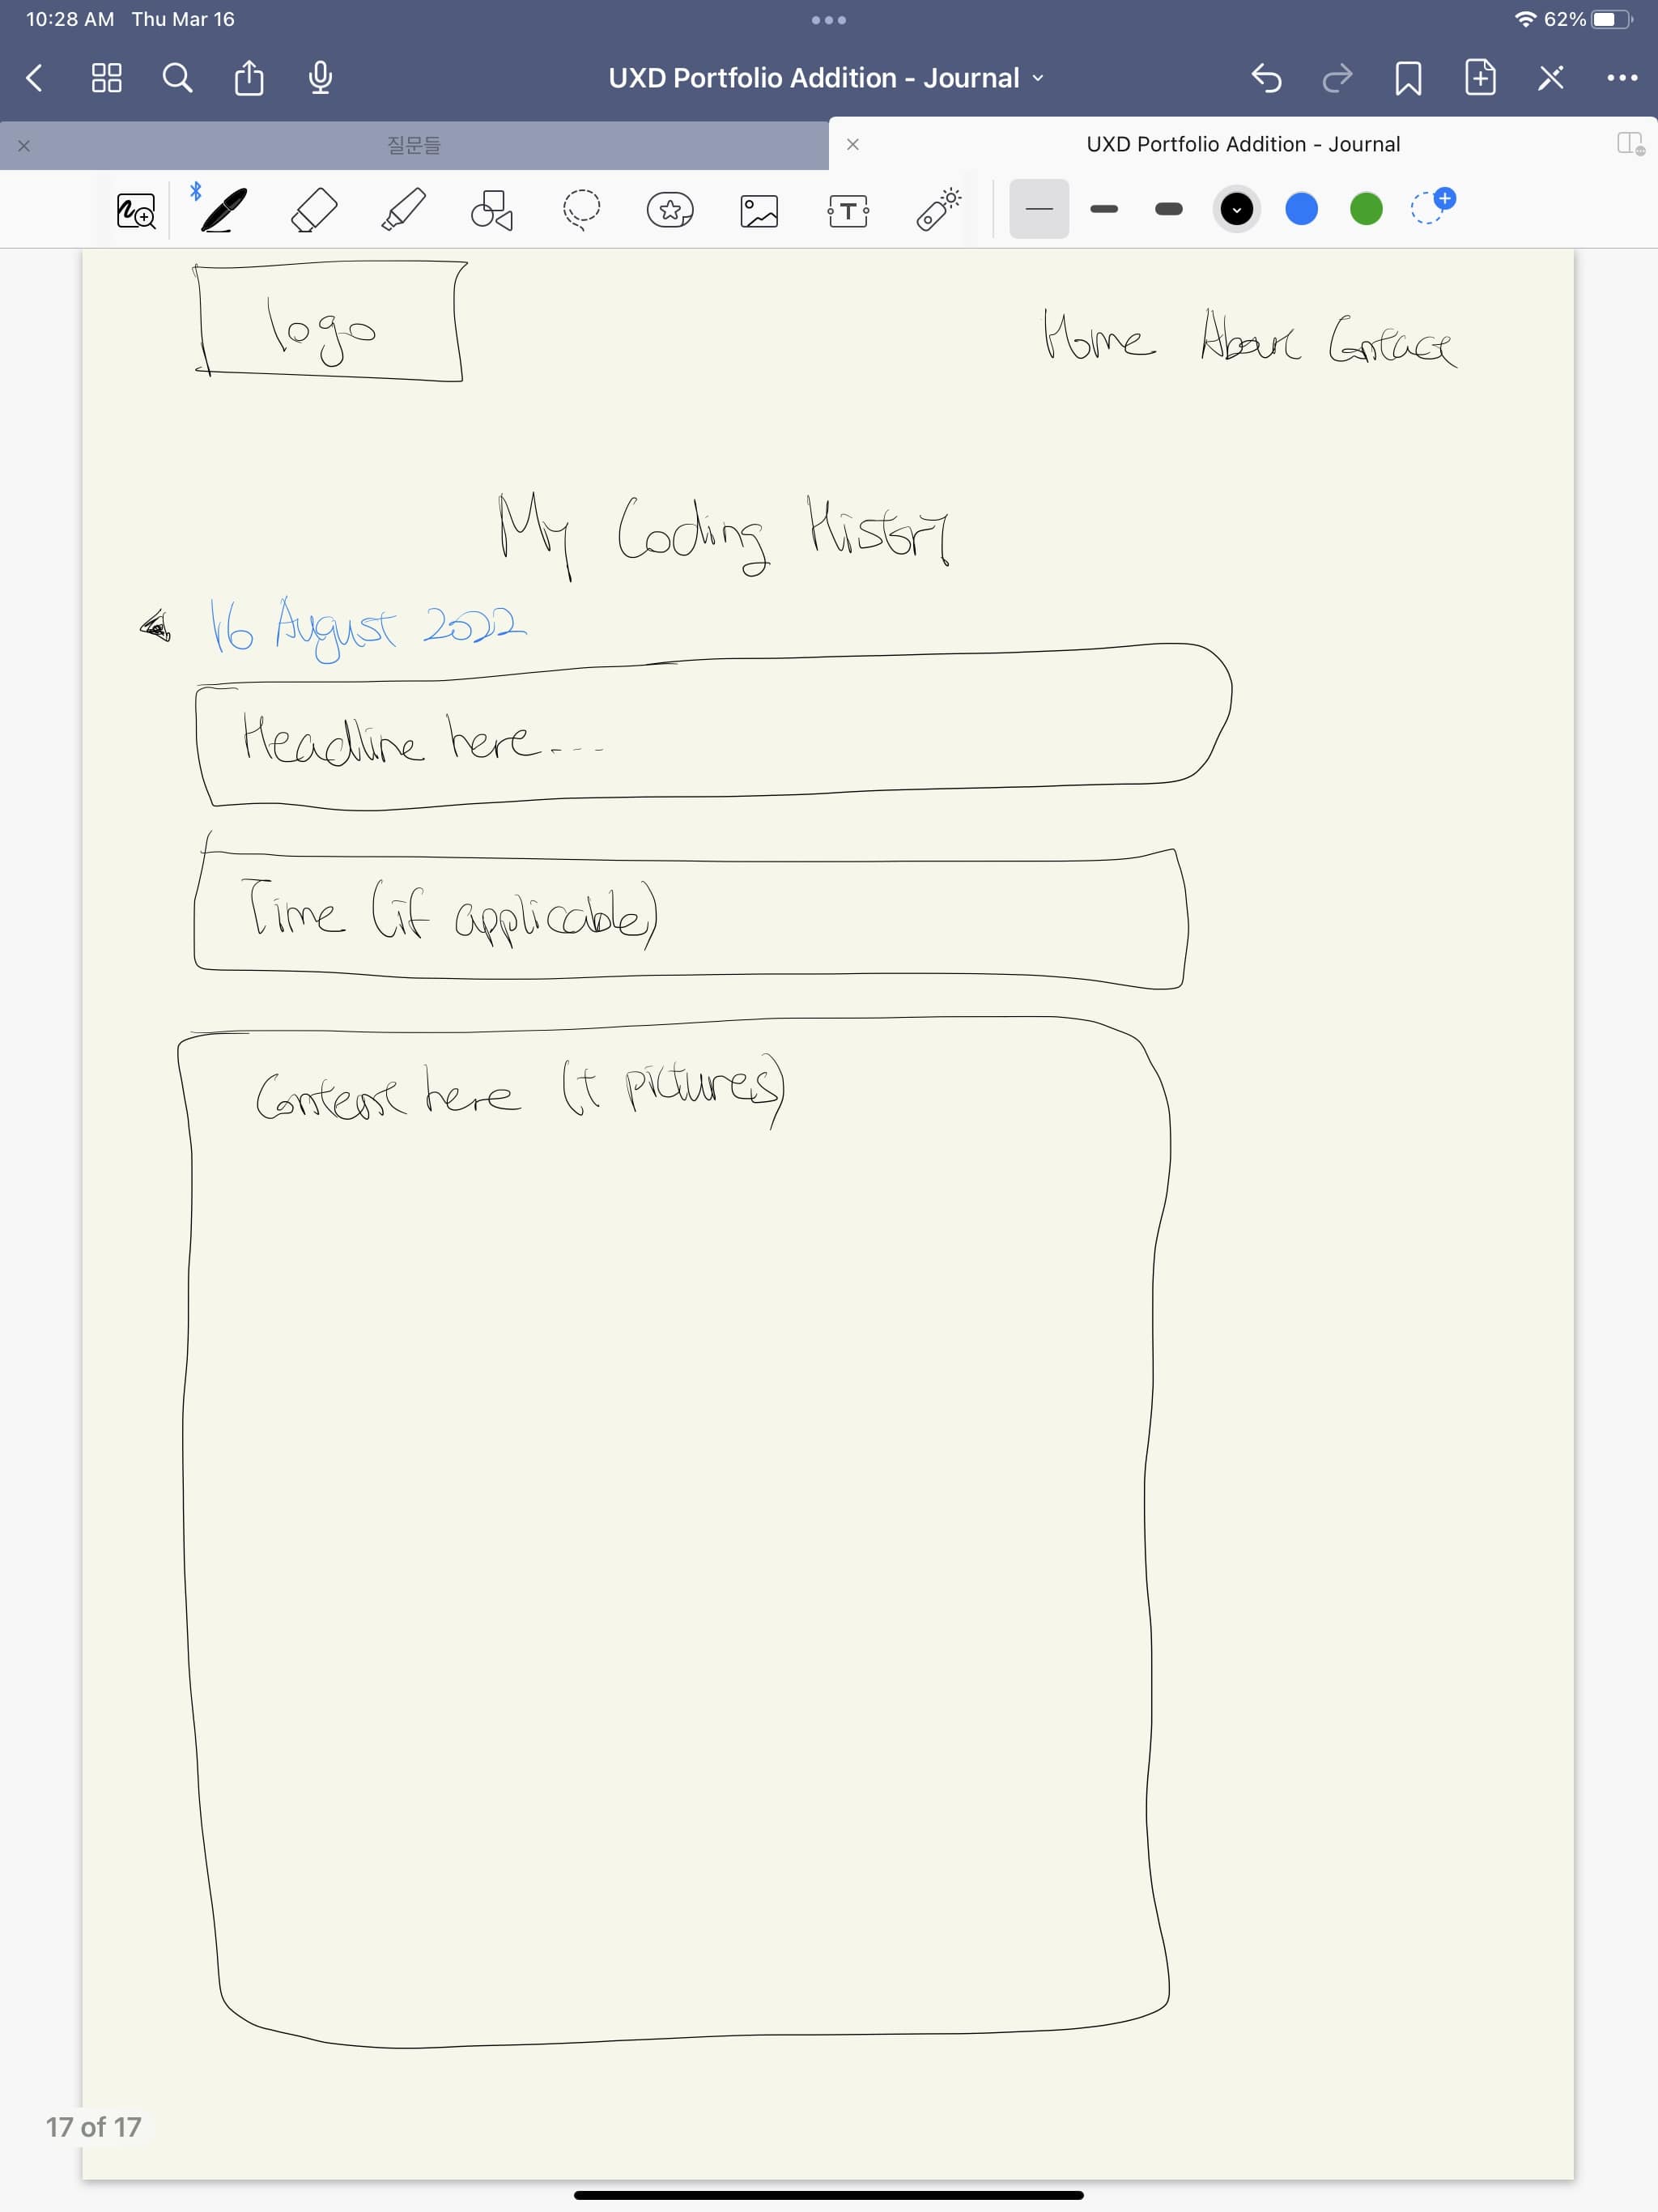 10:28 AM Thu Mar 16
62%
UXD Portfolio Addition - Journal
질문들
UXD Portfolio Addition - Journal
logo
Home About Contact
My Coding History
16 August 2022
Headline here....
Time (if applicable)
Content here (+ pictures)
17 of 17